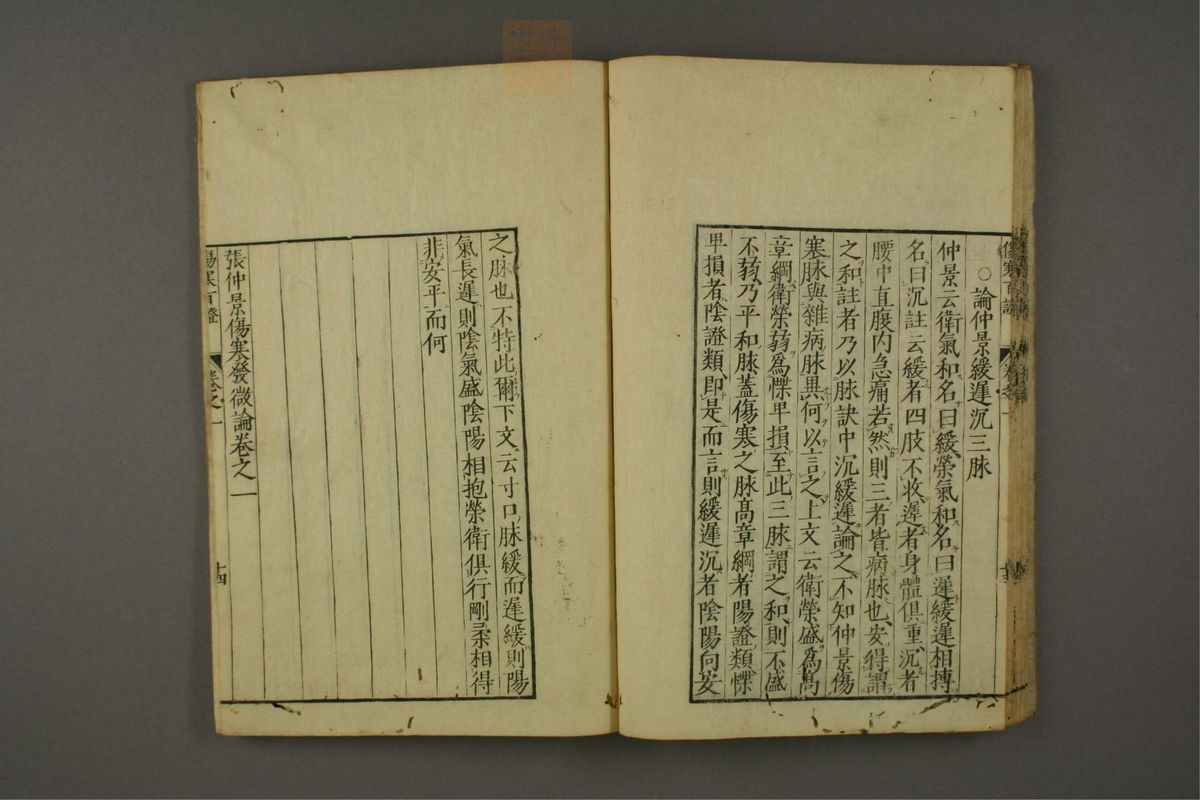 ○論仲景緩遲沉三脉
仲景云衛氣和名曰緩榮氣和名曰遲緩遲相摶
名曰沉註云緩者四肢不收遲者身體俱重沉者
腰中直腹内急痛若然則三者皆病脉也安得謂
之和註者乃以脉訣中沉緩遲論之不知仲景傷
寒脉與雜病脉異何以言之上文云衛榮盛爲高
章綱衛榮弱爲惵卑損至此三脉謂之和則不盛
不弱乃平和脉蓋傷寒之脉高章綱者陽證類惵
卑損者陰證類即是而言則緩遲沉者陰陽向安
之脉也不特此爾下文云寸口脉緩而遲緩則陽
氣長遲則陰氣盛陰陽相抱榮衛俱行剛柔相得
非安平而何
張仲景傷寒發微論卷之一
傷寒百證
卷之一
十四